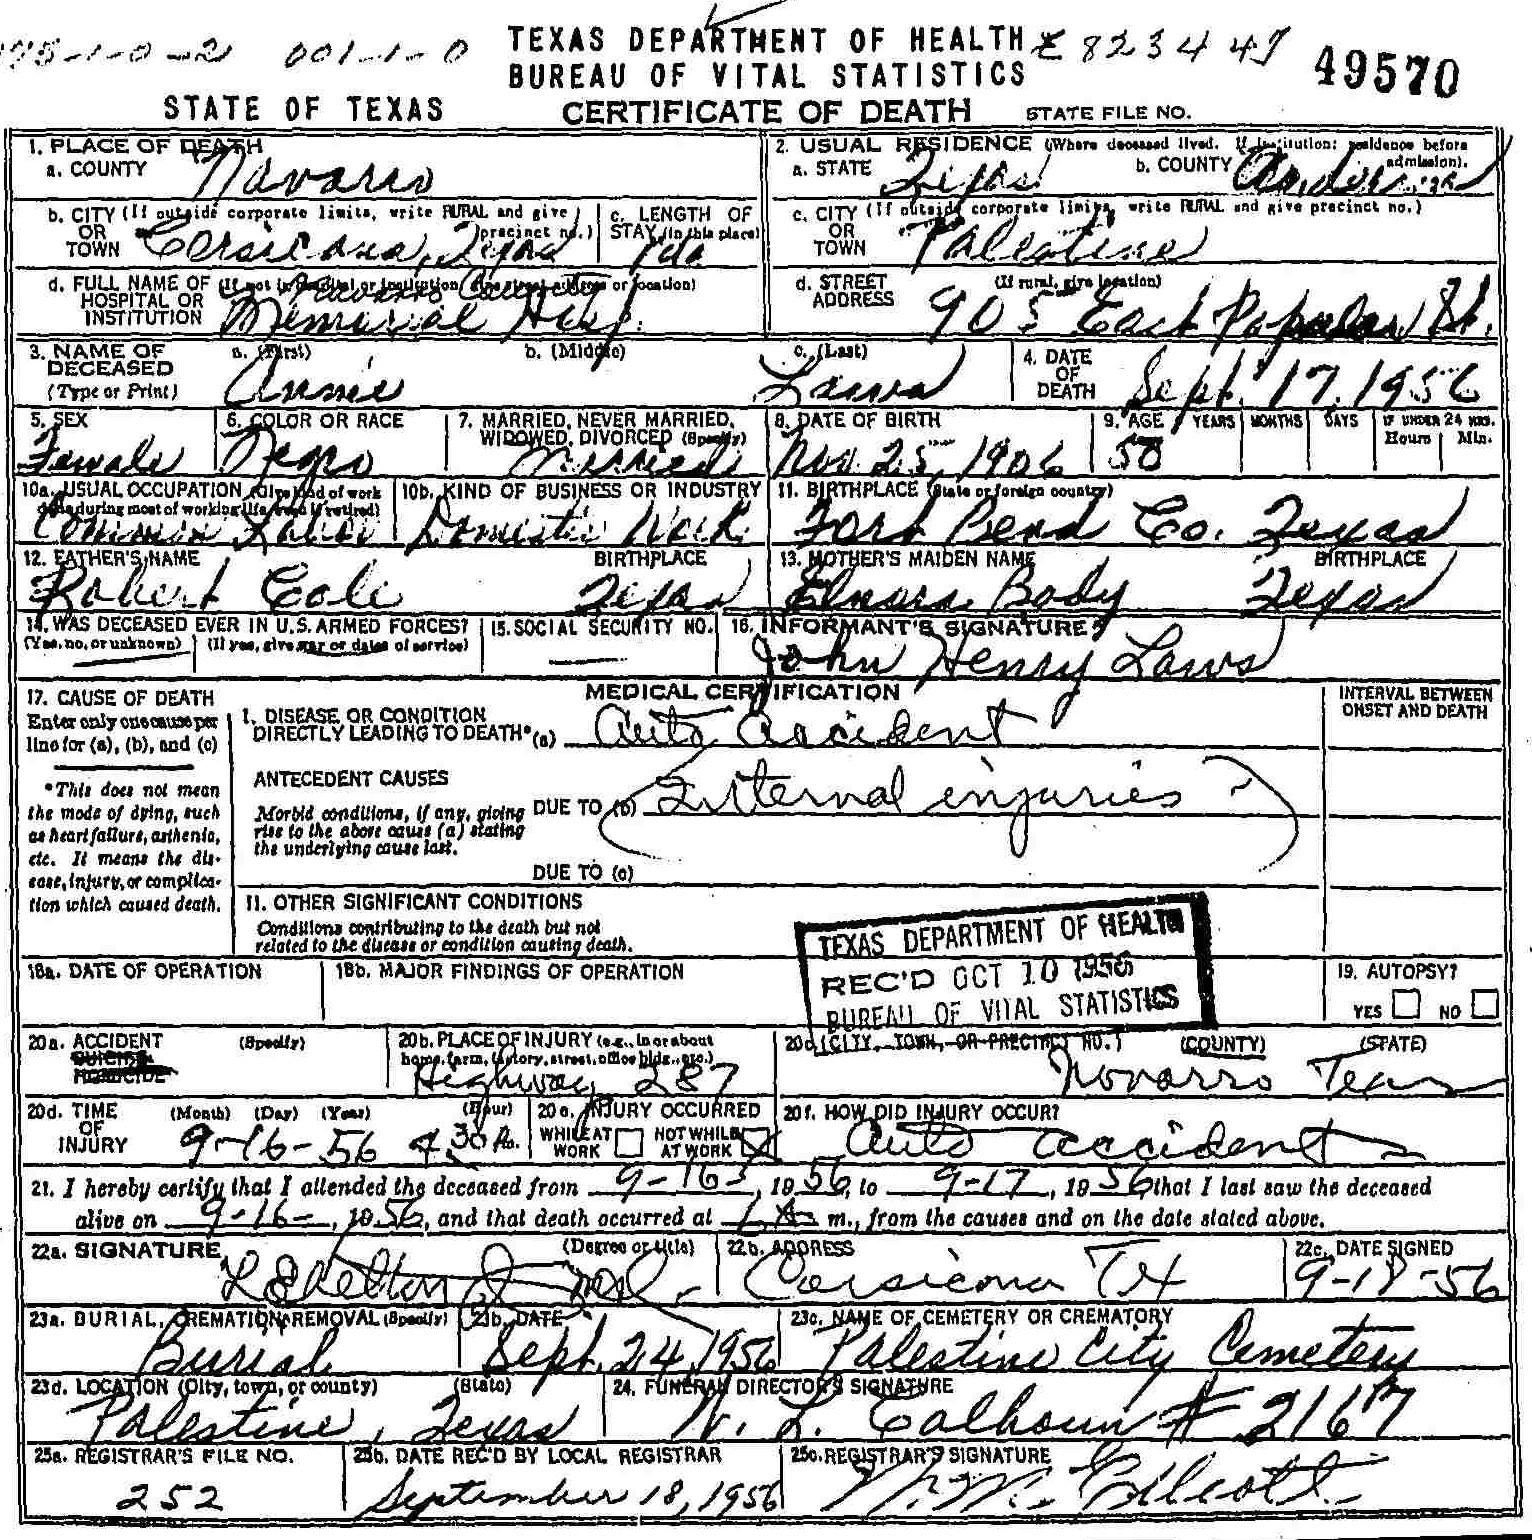 TEXAS DEPARTMENT OF HEALTH E 823447
001-1-0 BUREAU OF VITAL STATISTICS 49570
STATE OF TEXAS CERTIFICATE OF DEATH STATE FILE NO.
1. PLACE OF DEATH
a. COUNTY Navarro
2. USUAL RESIDENCE (Where deceased lived. If institution: residence before admission).
a. STATE Texas b. COUNTY Anderson
b. CITY (If outside corporate limits, write RURAL and give precinct no.)
OR
TOWN Corsicana, Texas
c. LENGTH OF
STAY (in this place)
1 da
c. CITY (If outside corporate limits, write RURAL and give precinct no.)
OR
TOWN Palestine
d. FULL NAME OF (If not in hospital or institution, give street address or location)
HOSPITAL OR
INSTITUTION Navarro County
Memorial Hosp.
d. STREET (If rural, give location)
ADDRESS 905 East Popular St.
3. NAME OF a. (First) b. (Middle) c. (Last)
DECEASED
(Type or Print) Annie Laws
4. DATE
OF
DEATH Sept. 17, 1956
5. SEX
Female
6. COLOR OR RACE
Negro
7. MARRIED, NEVER MARRIED,
WIDOWED, DIVORCED (Specify)
Married
8. DATE OF BIRTH
Nov. 25, 1906
9. AGE YEARS MONTHS DAYS IF UNDER 24 HRS.
Hours Min.
50
10a. USUAL OCCUPATION (Give kind of work
done during most of working life, even if retired)
Common Labor
10b. KIND OF BUSINESS OR INDUSTRY
Domestic Work
11. BIRTHPLACE (State or foreign country)
Fort Bend Co. Texas
12. FATHER'S NAME BIRTHPLACE
Robert Cole Texas
13. MOTHER'S MAIDEN NAME BIRTHPLACE
Elnora Body Texas
14. WAS DECEASED EVER IN U.S. ARMED FORCES?
(Yes, no, or unknown) (If yes, give war or dates of service)
15. SOCIAL SECURITY NO.
16. INFORMANT'S SIGNATURE
John Henry Laws
MEDICAL CERTIFICATION
17. CAUSE OF DEATH
Enter only one cause per
line for (a), (b), and (c)
*This does not mean
the mode of dying, such
as heart failure, asthenia,
etc. It means the dis-
ease, injury, or complica-
tion which caused death.
I. DISEASE OR CONDITION
DIRECTLY LEADING TO DEATH* (a) Auto accident
INTERVAL BETWEEN
ONSET AND DEATH
ANTECEDENT CAUSES
Morbid conditions, if any, giving
rise to the above cause (a) stating
the underlying cause last.
DUE TO (b) Internal injuries
DUE TO (c)
11. OTHER SIGNIFICANT CONDITIONS
Conditions contributing to the death but not
related to the disease or condition causing death.
TEXAS DEPARTMENT OF HEALTH
REC'D OCT 10 1956
BUREAU OF VITAL STATISTICS
18a. DATE OF OPERATION
18b. MAJOR FINDINGS OF OPERATION
19. AUTOPSY?
YES NO
20a. ACCIDENT (Specify)
SUICIDE
HOMICIDE
20b. PLACE OF INJURY (e.g., in or about
home, farm, factory, street, office bldg., etc.)
Highway 287
20c. (CITY, TOWN, OR PRECINCT NO.) (COUNTY) (STATE)
Navarro Texas
20d. TIME (Month) (Day) (Year) (Hour)
OF
INJURY 9-16-56 4:30 P.
20e. INJURY OCCURRED
WHILE AT
WORK
NOT WHILE
AT WORK X
20f. HOW DID INJURY OCCUR?
Auto accident
21. I hereby certify that I attended the deceased from 9-16, 1956, to 9-17, 1956 that I last saw the deceased
alive on 9-16-, 1956, and that death occurred at 1 A. m., from the causes and on the date stated above.
22a. SIGNATURE (Degree or title)
22b. ADDRESS
Corsicana Tx
22c. DATE SIGNED
9-18-56
23a. BURIAL, CREMATION, REMOVAL (Specify)
Burial
23b. DATE
Sept. 24, 1956
23c. NAME OF CEMETERY OR CREMATORY
Palestine City Cemetery
23d. LOCATION (City, town, or county) (State)
Palestine, Texas
24. FUNERAL DIRECTOR'S SIGNATURE
N. L. Calhoun # 2167
25a. REGISTRAR'S FILE NO.
252
25b. DATE REC'D BY LOCAL REGISTRAR
September 18, 1956
25c. REGISTRAR'S SIGNATURE